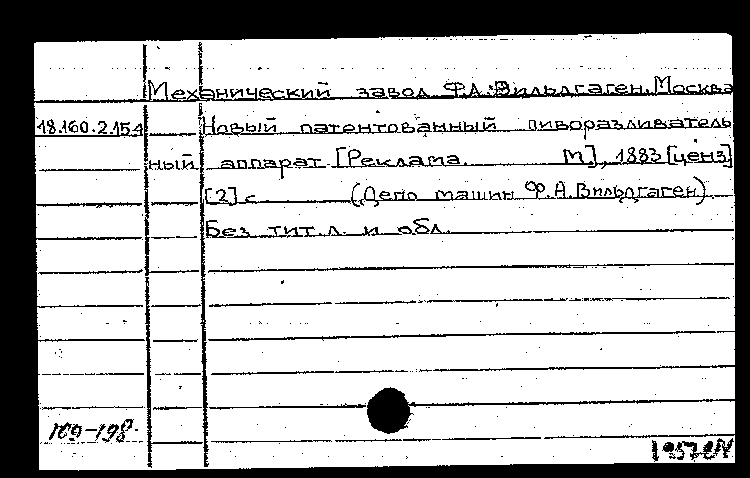 Механический завод Ф.А. Вильдгаген. Москва
18.160.2.154 Новый патентованный пиворазливатель
ный аппарат [Реклама. М], 1883 [ценз]
[2] с. (Депо машин Ф.А. Вильдгаген).
Без тит. л. и обл.
169-198.